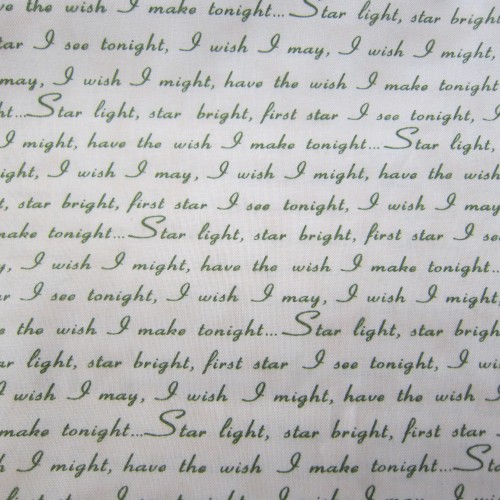 ve the wish I make tonight...Star light, star bright
tar I see tonight, I wish I may, I wish I might,
may, I wish I might, have the wish I make tonight
ht...Star light, star bright, first star I see tonight, I
I might, have the wish I make tonight...Star light,
ight, I wish I may, I wish I might, have the wish
t, star bright, first star I see tonight, I wish I may
make tonight...Star light, star bright, first star I see
y, I wish I might, have the wish I make tonight...
ar I see tonight, I wish I may, I wish I might,
e the wish I make tonight...Star light, star brigh
ar light, star bright, first star I see tonight, I wi
I wish I may, I wish I might, have the wish I
make tonight...Star light, star bright, first star I
h I might, have the wish I make tonight...Star
first star I see tonight, I wish I may, I wish I